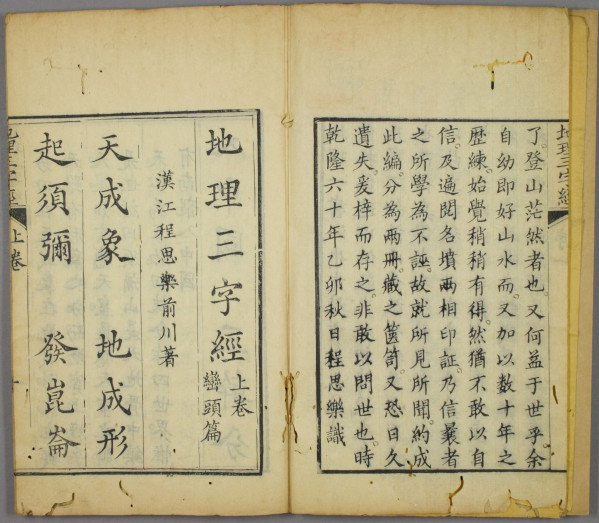 了登山茫然者也又何益于世乎余
自幼即好山水而又加以数十年之
歷練始覺稍稍有得然猶不敢以自
信及遍閱各墳兩相印証乃信曩者
之所學為不誣故就所見所聞約成
此編分為兩冊藏之篋笥又恐日久
遺失爰梓而存之非敢以問世也時
乾隆六十年乙卯秋日程思樂識
地理三字經
地理三字經 上卷 巒頭篇
漢江程思樂前川著
天成象 地成形
起須彌 發崑崙
地理三字經 上卷